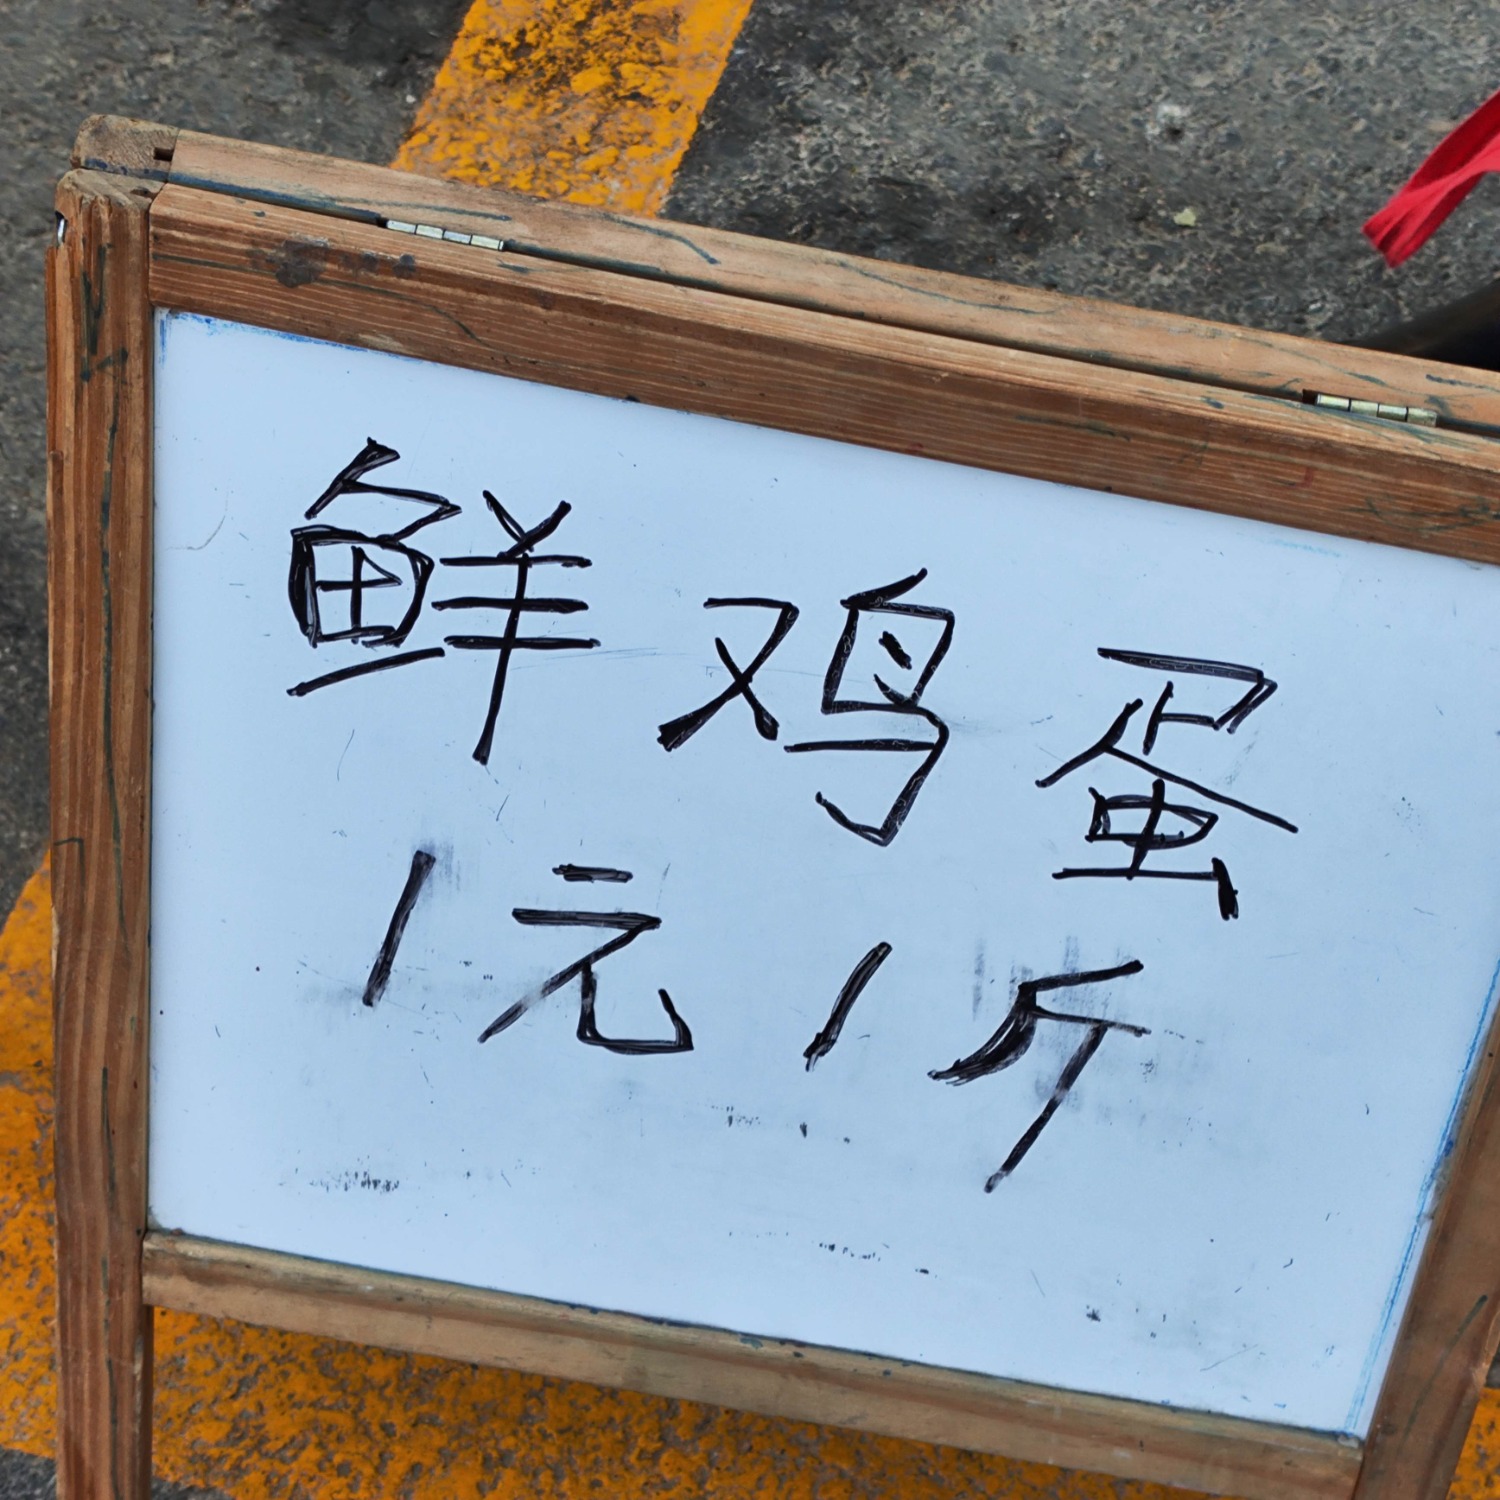 鲜鸡蛋
1元1斤